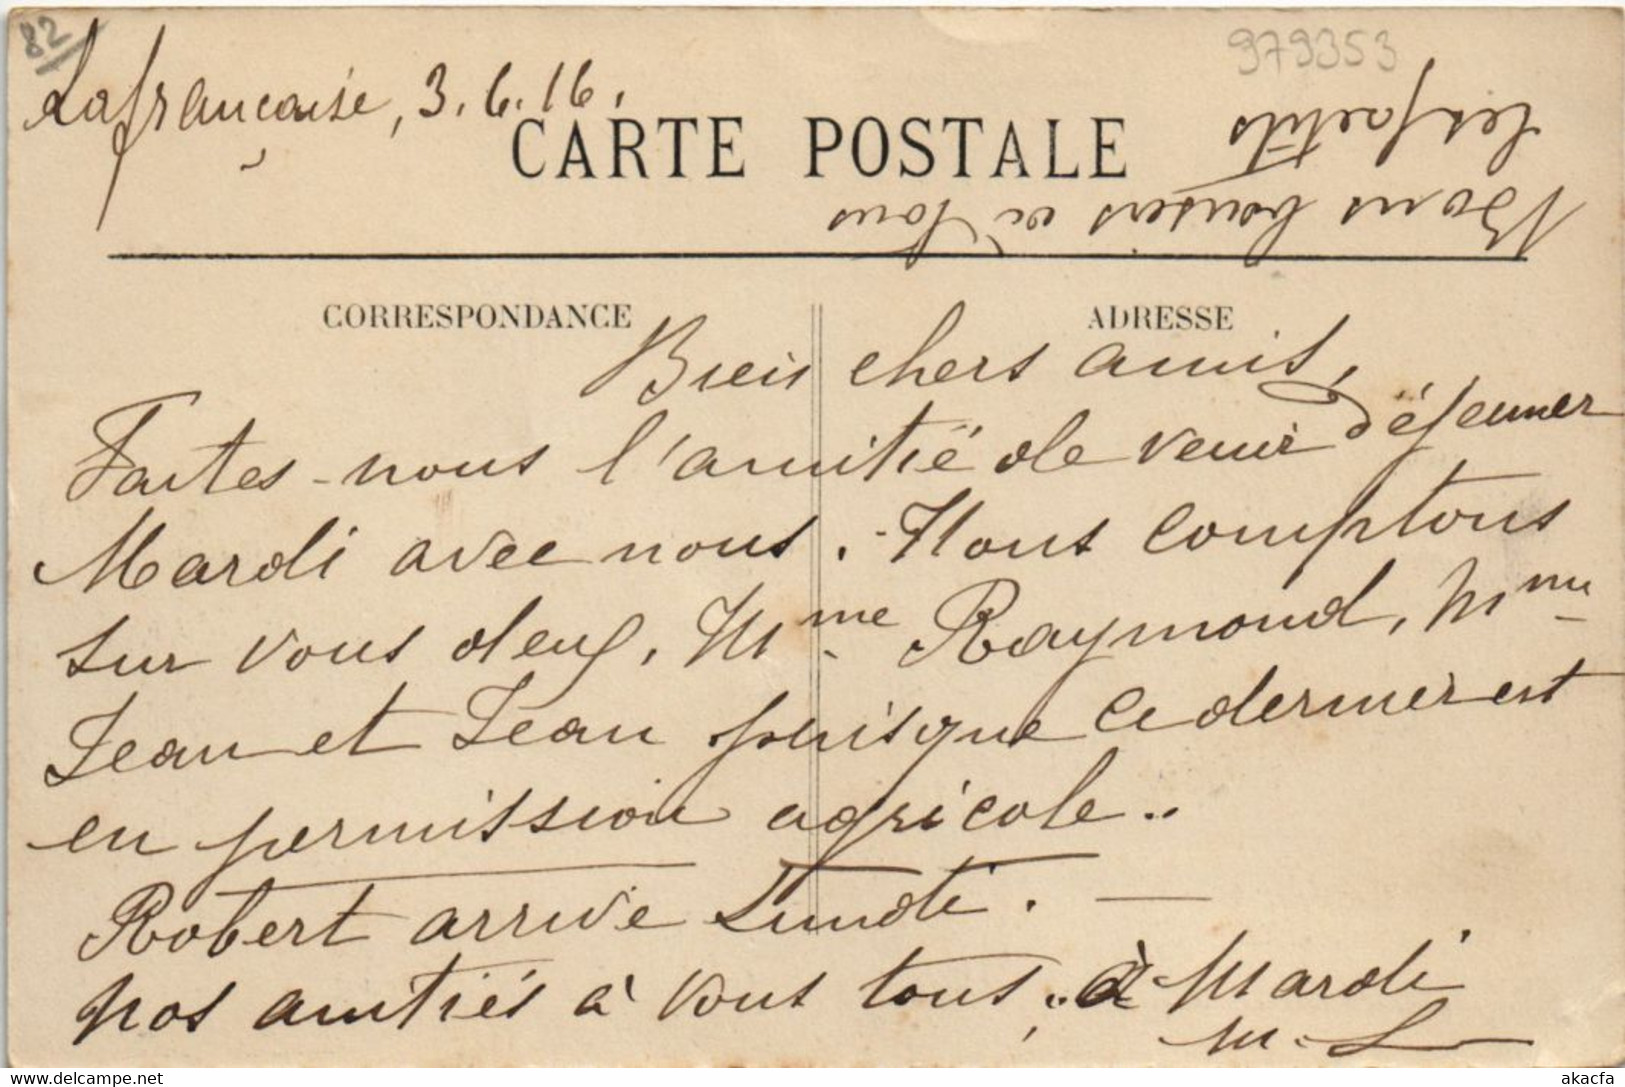 82
979353
Lafrançaise, 3.6.16.
CARTE POSTALE
Bons baisers à tous
les petits
CORRESPONDANCE
ADRESSE
Bien chers amis,
Faites-nous l'amitié de venir déjeuner
Mardi avec nous. - Nous comptons
sur vous deux, Mme Raymond, Mme
Jean et Jean puisque ce dernier est
en permission agricole..
Robert arrive Lundi. —
Nos amitiés à vous tous, à Mardi
M. L
akacfa